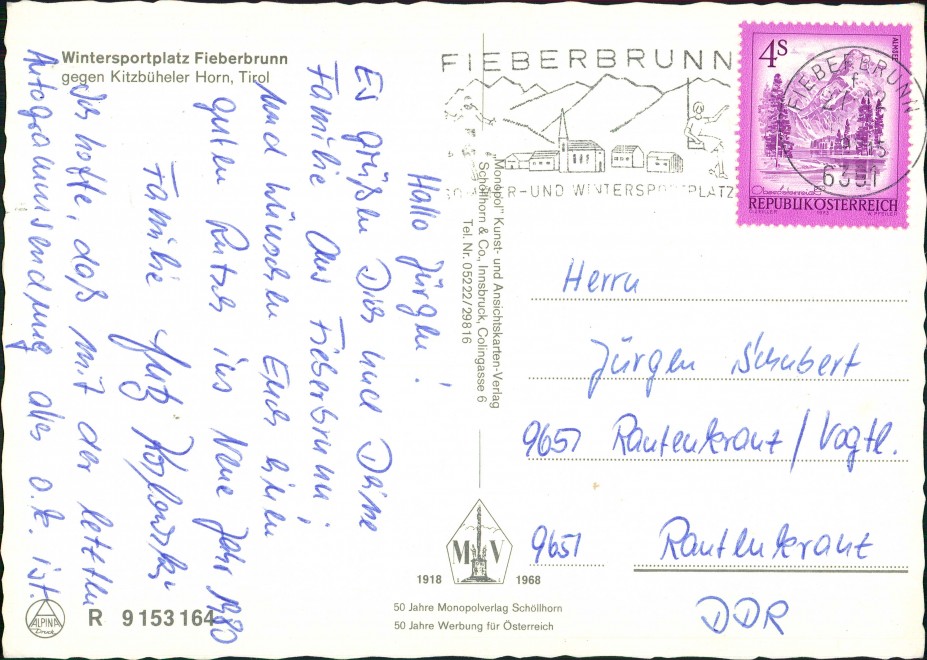 Wintersportplatz Fieberbrunn
gegen Kitzbüheler Horn, Tirol
Hallo Jürgen!
Es grüßen Dich und Deine
Familie aus Fieberbrunn
und wünschen Euch einen
guten Rutsch ins Neue Jahr 1980
Familie Fritz Kozlowski
Ich hoffe, daß mit der letzten
Autogrammsendung alles o.k. ist.
"Monopol" Kunst- und Ansichtskarten-Verlag
Schöllhorn & Co., Innsbruck, Colingasse 6
Tel. Nr. 05222/29816
M V
1918 1968
50 Jahre Monopolverlag Schöllhorn
50 Jahre Werbung für Österreich
ALPINA
Druck
R 9 153 164
FIEBERBRUNN
SOMMER-UND WINTERSPORTPLATZ
4S
ALMSEE
Oberösterreich
REPUBLIK ÖSTERREICH
1973
FIEBERBRUNN
6391
Herrn
Jürgen Schubert
9651 Rautenkranz / Vogtl.
9651 Rautenkranz
DDR